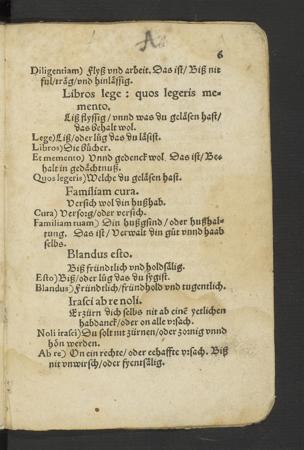 A
6
Diligentiam) Flyß vnd arbeit. Das ist/ Biß nit
ful/träg/vnd hinlässig.
Libros lege : quos legeris me-
mento.
Liß flyssig/ vnnd was du geläsen hast/
das behalt wol.
Lege) Liß/oder lüg das du läsist.
Libros) Die bücher.
Et memento) Vnnd gedenck wol. Das ist/ Be-
halt in gedächtnuß.
Quos legeris) Welche du geläsen hast.
Familiam cura.
Versich wol din hußhab.
Cura) Versorg/oder versich.
Familiam tuam) Din hußgsind/oder hußhal-
tung. Das ist/ Verwalt din güt vnnd haab
selbs.
Blandus esto.
Biß fründtlich vnd holdsälig.
Esto) Biß/oder lüg das du sygist.
Blandus) Fründtlich/fründhold vnd tugentlich.
Irasci ab re noli.
Erzürn dich selbs nit ab einē yetlichen
habdanck/oder on alle vrsach.
Noli irasci) Du solt nit zürnen/oder zornig vnnd
hön werden.
Ab re) On ein rechte/oder eehaffte vrsach. Biß
nit vnwirsch/oder fyentsälig.